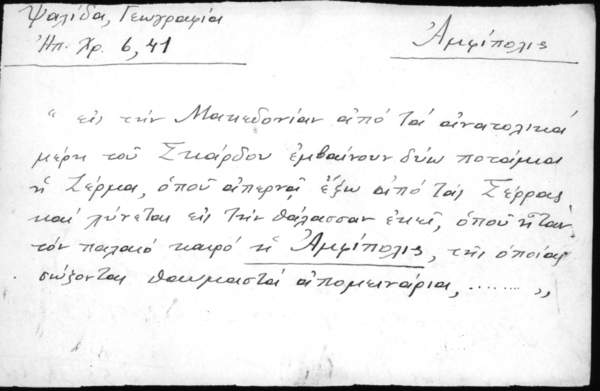 Ψαλίδα, Γεωγραφία
Ἠπ. Χρ. 6, 41
Ἀμφίπολις
" εἰς τὴν Μακεδονίαν ἀπό τά ἀνατολικά
μέρη τοῦ Σκάρδου ἐμβαίνουν δύω ποτάμια
ἡ Ζέρμα, ὁποῦ ἀπερνᾷ ἔξω ἀπό τάς Σέρρας
καί χύνεται εἰς τήν θάλασσαν ἐκεῖ, ὁποῦ ἦταν
τόν παλαιό καιρό ἡ Ἀμφίπολις, τῆς ὁποίας
σώζονται θαυμαστά ἀπομεινάρια, ........ „